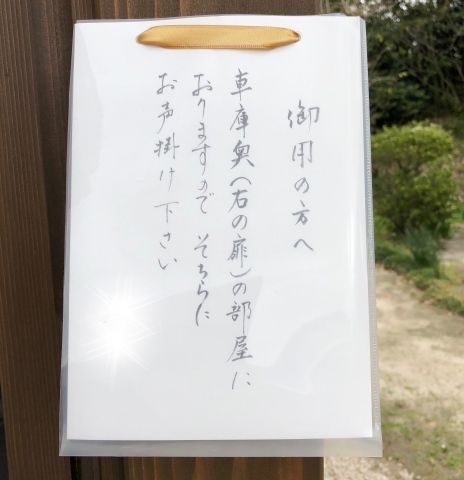 御用の方へ
車庫奥(右の扉)の部屋に
おりますので そちらに
お声掛け下さい